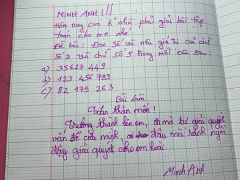 MINH ANH !!!
Hôm nay con ở nhà phải giải bài tập
toán cho mẹ nhé
Đề bài: Đọc số và nêu giá trị của chữ
số 2 và chữ số 5 trong mỗi số sau
a) 35627 449
b) 123 456 789
c) 82 175 263
Bài làm
Trần thân mến!
Trưởng thành lên em, đi mà tự giải quyết
vấn đề của mình, đâu mà hành nghĩ
đây giải quyết cho em hoài.
Minh Anh